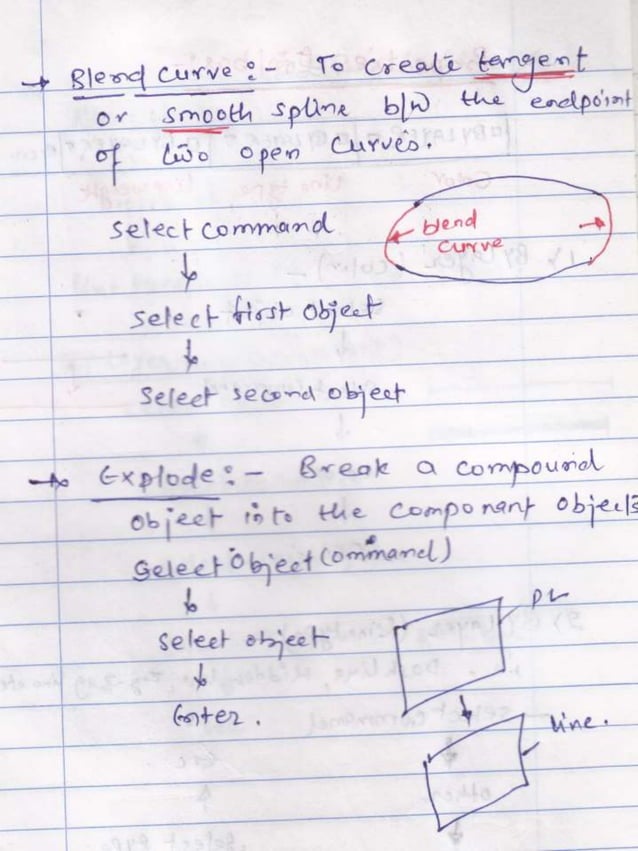 → Blend curve :- To create tengent
or smooth spline b/w the endpoint
of two open curves.
select command
↓
select first object
↓
select second object
blend
curve
→ Explode :- Break a compound
object into the componant objects
Select object (ommand)
↓
select object
↓
Enter.
PL
line.